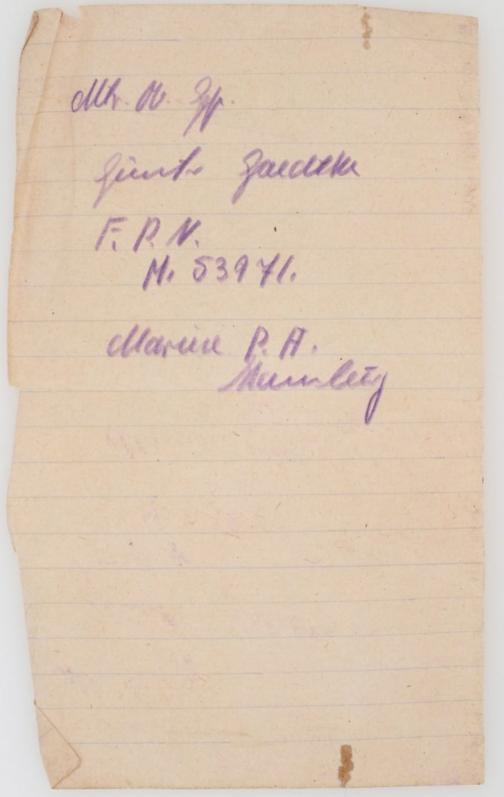 Mtr. O. Gfr.
Günter Gaedtke
F. P. N.
M. 53971.
Marine P. A.
Hamburg